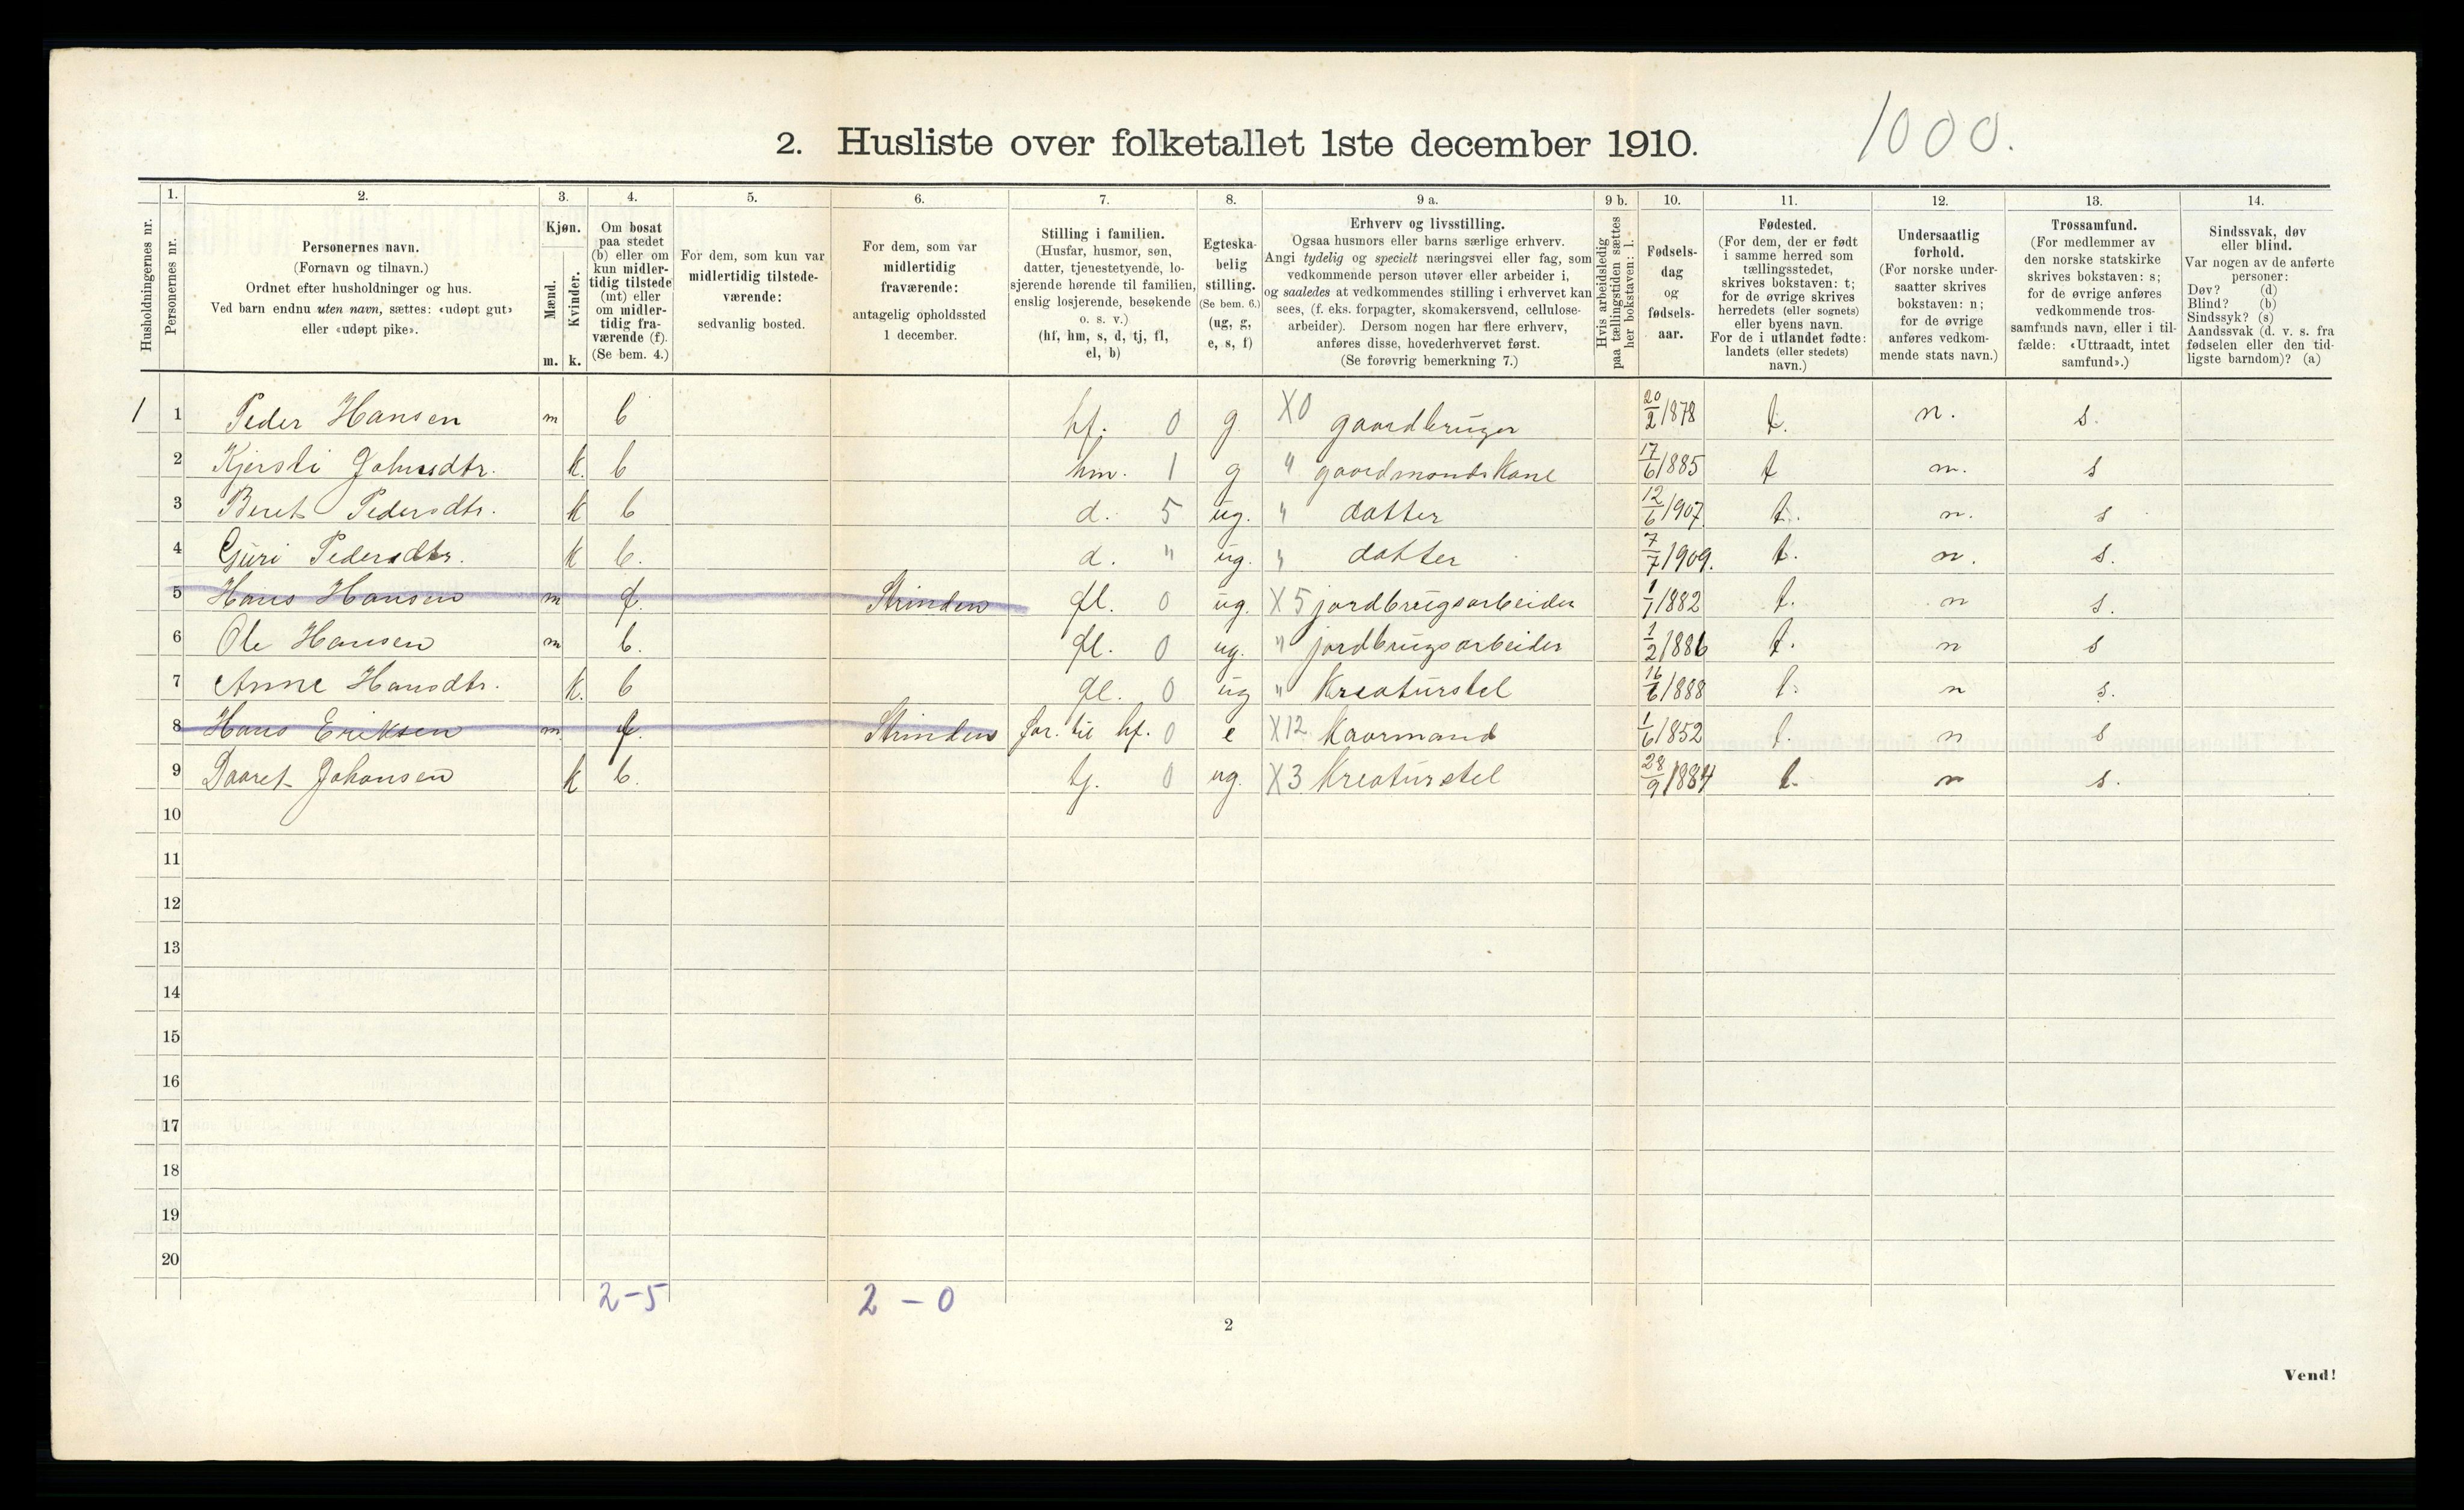 2. Husliste over folketallet 1ste december 1910.
1000.
Husholdningernes nr.
1.
Personernes nr.
2.
Personernes navn.
(Fornavn og tilnavn.)
Ordnet efter husholdninger og hus.
Ved barn endnu uten navn, sættes: «udøpt gut»
eller «udøpt pike».
3.
Kjøn.
Mænd.
Kvinder.
m. k.
4.
Om bosat
paa stedet
(b) eller om
kun midler-
tidig tilstede
(mt) eller
om midler-
tidig fra-
værende (f).
(Se bem. 4.)
5.
For dem, som kun var
midlertidig tilstede-
værende:
sedvanlig bosted.
6.
For dem, som var
midlertidig
fraværende:
antagelig opholdssted
1 december.
7.
Stilling i familien.
(Husfar, husmor, søn,
datter, tjenestetyende, lo-
sjerende hørende til familien,
enslig losjerende, besøkende
o. s. v.)
(hf, hm, s, d, tj, fl,
el, b)
8.
Egteska-
belig
stilling.
(Se bem. 6.)
(ug, g,
e, s, f)
9 a.
Erhverv og livsstilling.
Ogsaa husmors eller barns særlige erhverv.
Angi tydelig og specielt næringsvei eller fag, som
vedkommende person utøver eller arbeider i,
og saaledes at vedkommendes stilling i erhvervet kan
sees, (f. eks. forpagter, skomakersvend, cellulose-
arbeider). Dersom nogen har flere erhverv,
anføres disse, hovederhvervet først.
(Se forøvrig bemerkning 7.)
9 b.
Hvis arbeidsledig
paa tællingstiden sættes
her bokstaven: l.
10.
Fødsels-
dag
og
fødsels-
aar.
11.
Fødested.
(For dem, der er født
i samme herred som
tællingsstedet,
skrives bokstaven: t;
for de øvrige skrives
herredets (eller sognets)
eller byens navn.
For de i utlandet fødte:
landets (eller stedets)
navn.)
12.
Undersaatlig
forhold.
(For norske under-
saatter skrives
bokstaven: n;
for de øvrige
anføres vedkom-
mende stats navn.)
13.
Trossamfund.
(For medlemmer av
den norske statskirke
skrives bokstaven: s;
for de øvrige anføres
vedkommende tros-
samfunds navn, eller i til-
fælde: «Uttraadt, intet
samfund».)
14.
Sindssvak, døv
eller blind.
Var nogen av de anførte
personer:
Døv? (d)
Blind? (b)
Sindssyk? (s)
Aandssvak (d. v. s. fra
fødselen eller den tid-
ligste barndom)? (a)
1 1 Peder Hansen m b hf. 0 g X0 gaardbruger 20/2 1878 t. n. s.
2 Kjersti Johnsdtr. k. b hm. 1 g " gaardmandskone 17/6 1885 t n. s
3 Beret Pedersdtr. k b d. 5 ug. " datter 12/6 1907 t. n. s
4 Guri Pedersdtr. k b. d. " ug. " datter 7/7 1909. t. n. s.
5 Hans Hansen m f. Strinden fl. 0 ug. X5 jordbrugsarbeider 1/1 1882 t. n s.
6 Ole Hansen m b. fl. 0 ug. " jordbrugsarbeider 1/2 1886 t. n s
7 Anne Hansdtr. k. b fl. 0 ug " Kreaturstel 16/6 1888 t. n s.
8 Hans Eriksen m f. Strinden far til hf. 0 e X12 Kaarmand 1/6 1852 t. n s
9 Daaret Johansen k b. tj. 0 ug. X3 Kreaturstel 28/9 1884 t. n s.
10
11
12
13
14
15
16
17
18
19
20
2-5 2-0
2
Vend!